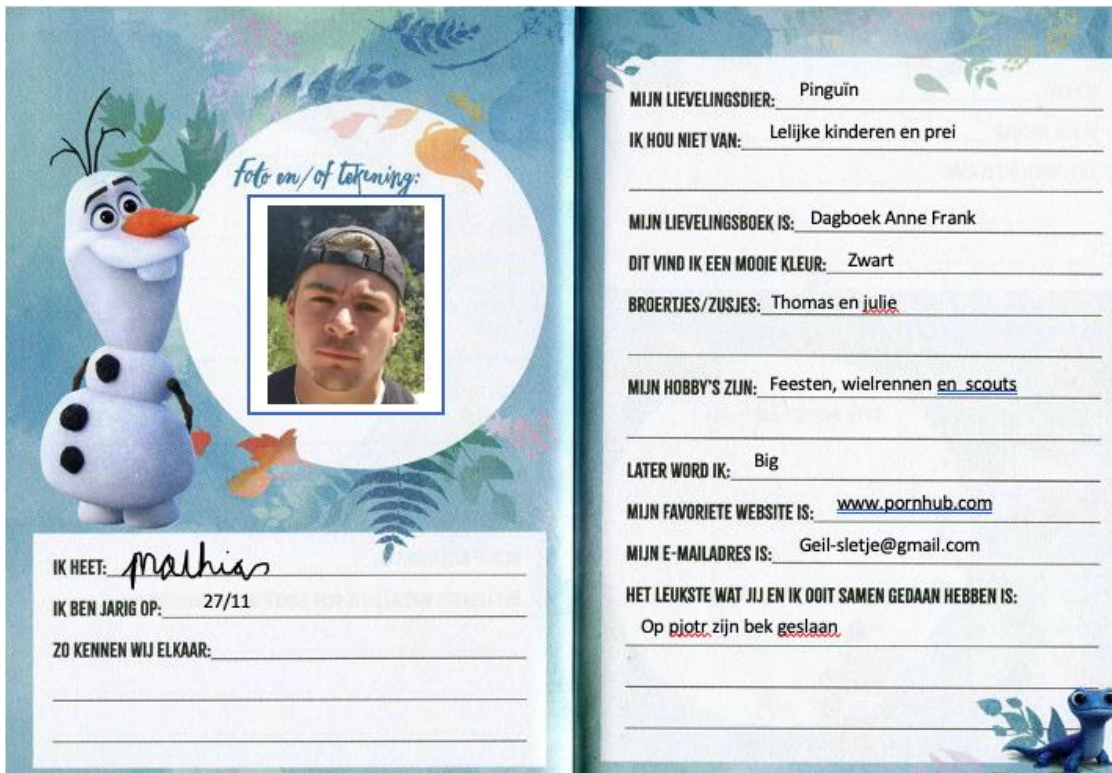 Foto en/of tekening:
IK HEET: Mathias
IK BEN JARIG OP: 27/11
ZO KENNEN WIJ ELKAAR:
MIJN LIEVELINGSDIER: Pinguïn
IK HOU NIET VAN: Lelijke kinderen en prei
MIJN LIEVELINGSBOEK IS: Dagboek Anne Frank
DIT VIND IK EEN MOOIE KLEUR: Zwart
BROERTJES/ZUSJES: Thomas en julie
MIJN HOBBY'S ZIJN: Feesten, wielrennen en scouts
LATER WORD IK: Big
MIJN FAVORIETE WEBSITE IS: www.pornhub.com
MIJN E-MAILADRES IS: Geil-sletje@gmail.com
HET LEUKSTE WAT JIJ EN IK OOIT SAMEN GEDAAN HEBBEN IS:
Op pjotr zijn bek geslaan